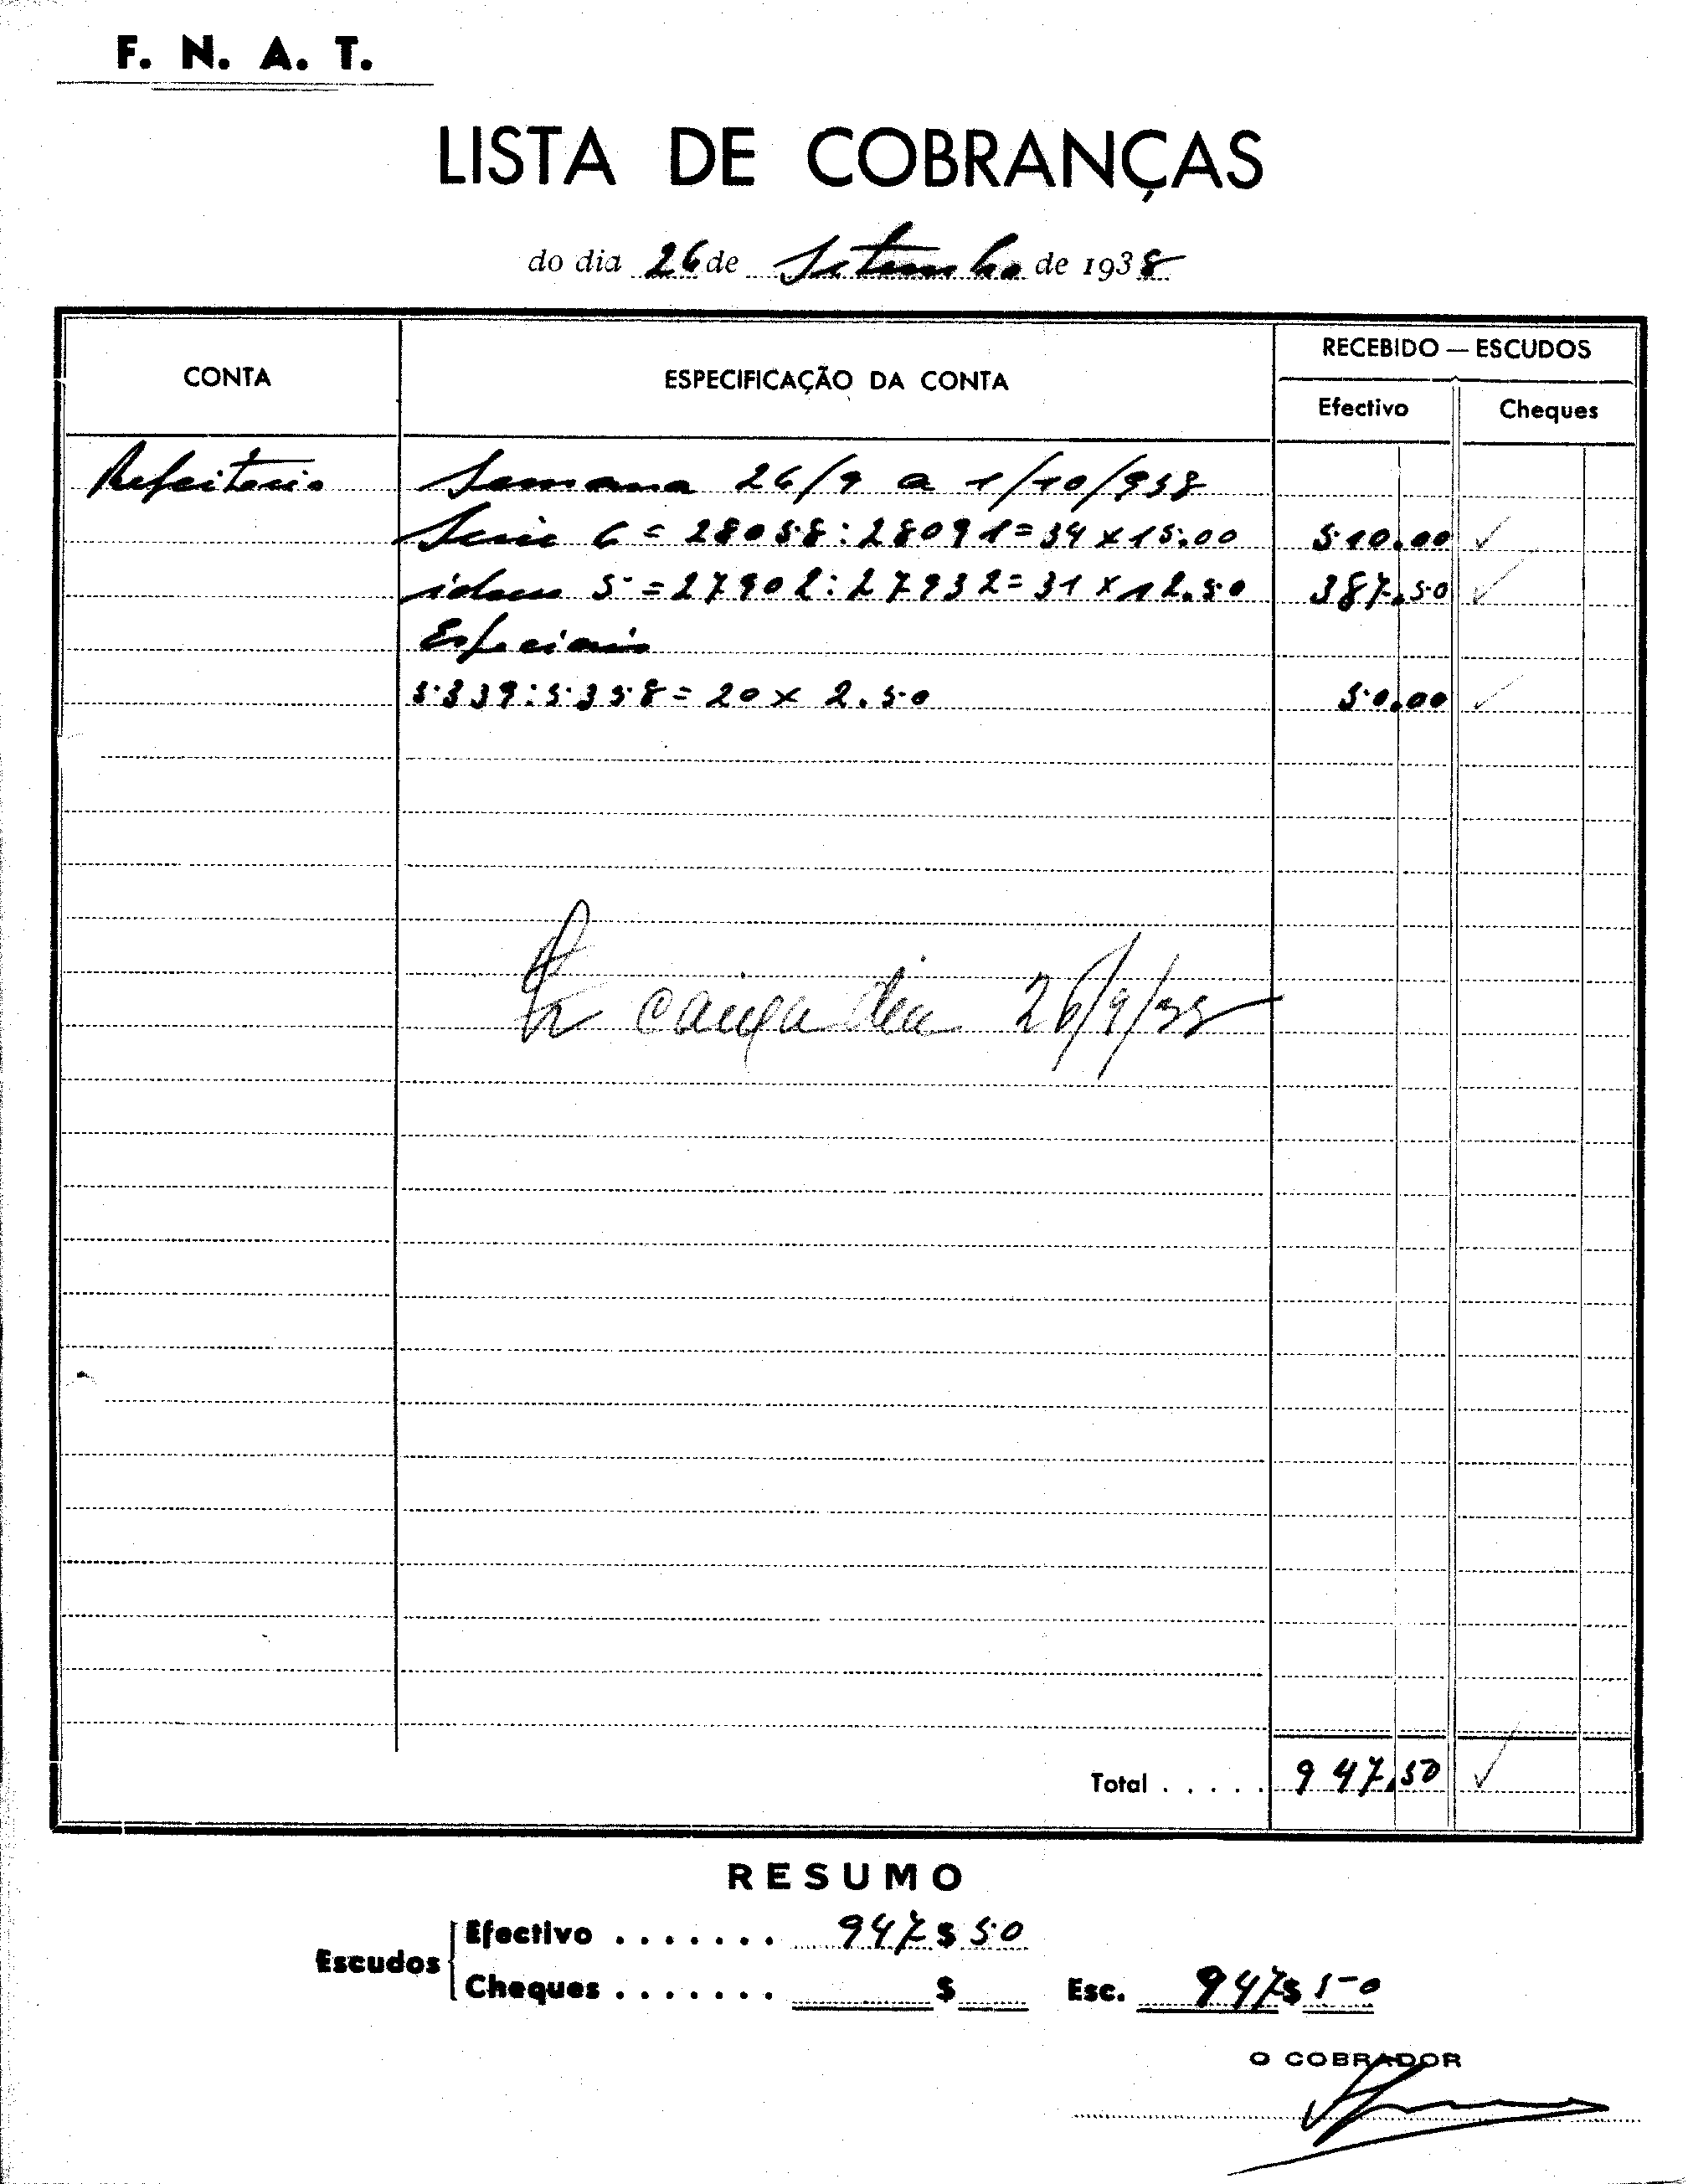 F. N. A. T.
LISTA DE COBRANÇAS
do dia 26 de Setembro de 1938
CONTA
ESPECIFICAÇÃO DA CONTA
RECEBIDO — ESCUDOS
Efectivo
Cheques
Refeitorio Semana 26/9 a 1/10/938
Serie 6 = 28058:28091=34 x 15.00 510.00
idem 5 = 27902:27932=31 x 12.50 387.50
Especiais
5339:5358=20 x 2.50 50.00
caixa dia 26/9/38
Total . . . . . 947,50
RESUMO
Escudos
Efectivo . . . . . . . 947$50
Cheques . . . . . . . $
Esc. 947$50
O COBRADOR